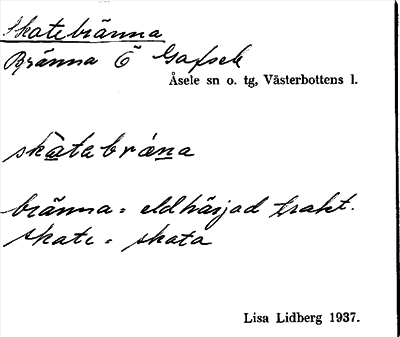 Skatebränna
Bränna Ö Gafsek
Åsele sn o. tg, Västerbottens l.
skatebrána
bränna = eldhärjad trakt.
skate = skata
Lisa Lidberg 1937.